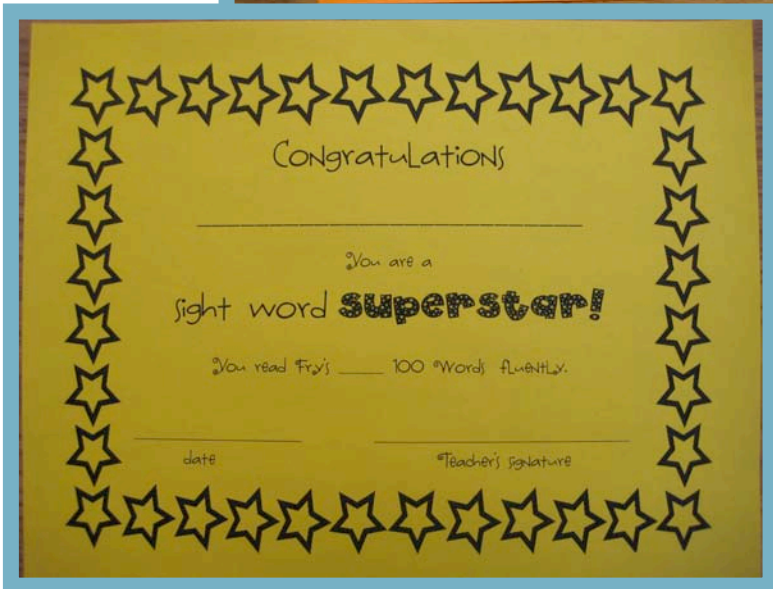 Congratulations
You are a
sight word superstar!
You read Fry's ____ 100 Words fluently.
date Teacher's signature